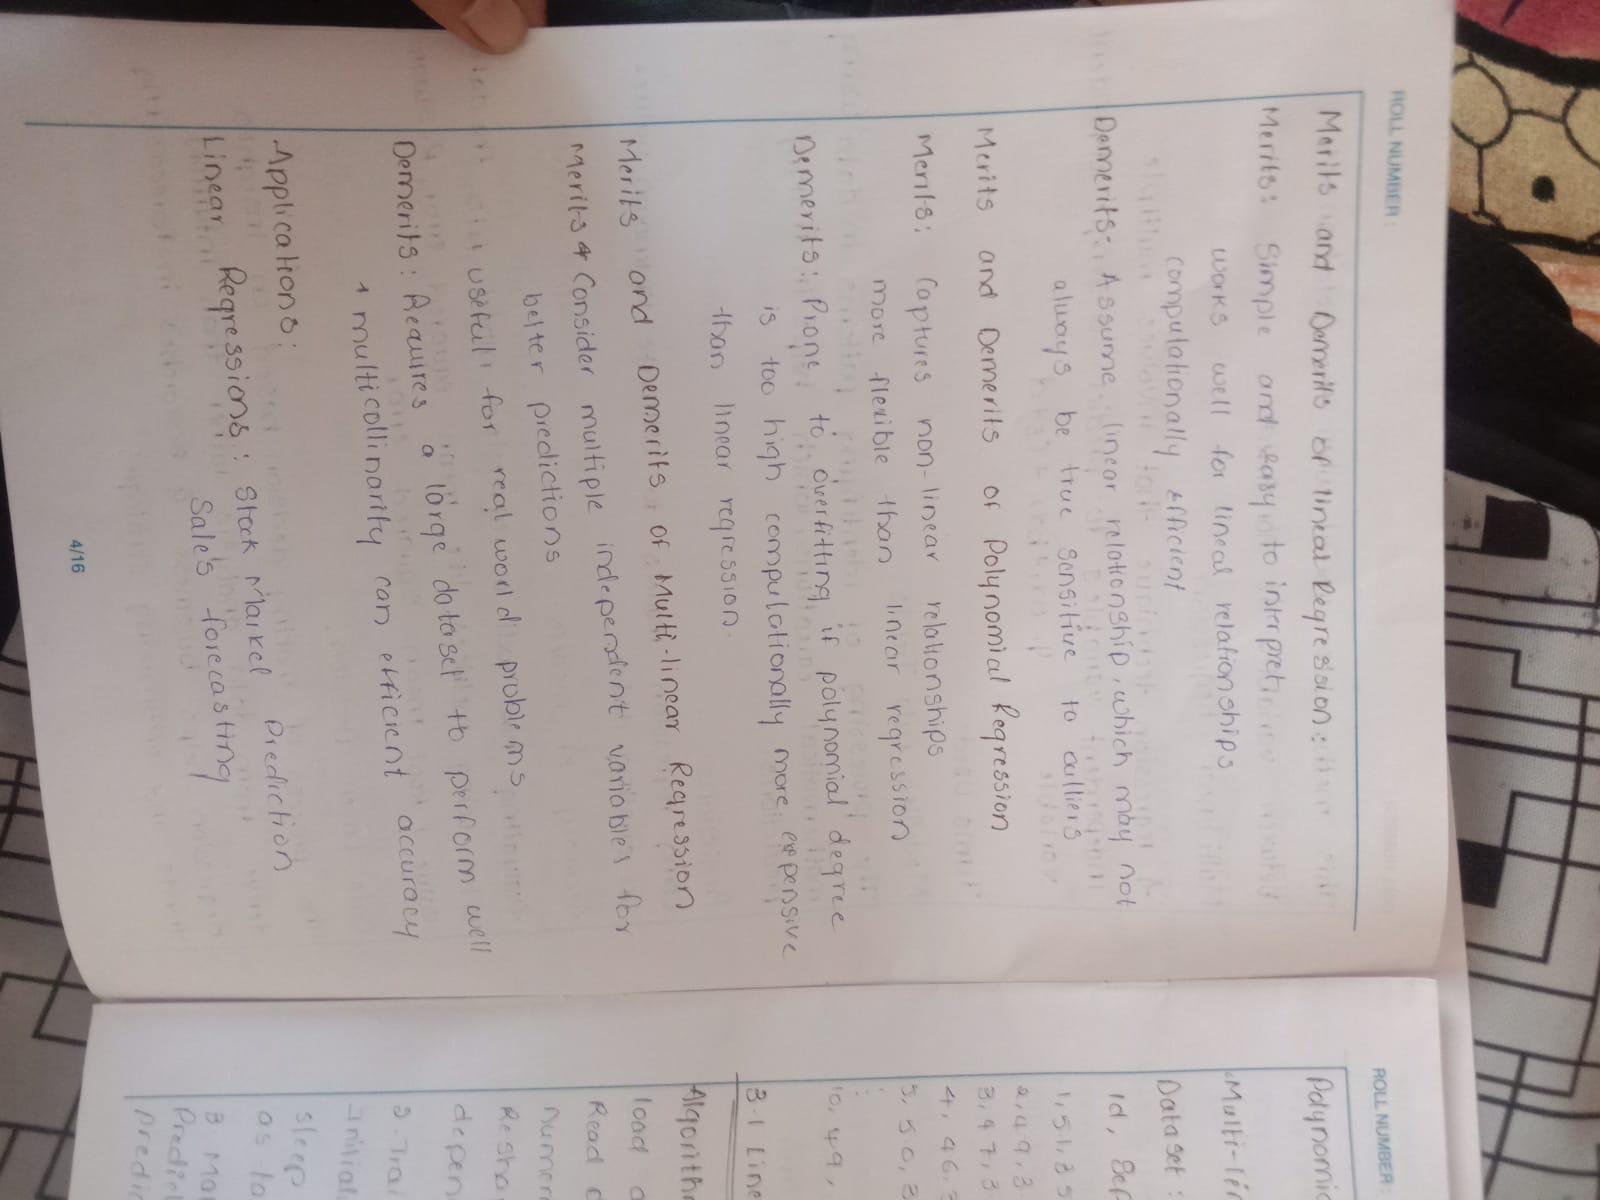 ROLL NUMBER :
Merits and Demerits of lineal Regression:
Merits: Simple and easy to interpret,
works well for lineal relationships
computationally Efficient
Demerits: Assume linear relationship, which may not
always be true sensitive to outliers
Merits and Demerits of Polynomial Regression
Merits: Captures non-linear relationships
more flexible than linear regression
Demerits: Prone to overfitting if polynomial degree
is too high computationally more expensive
than linear regression.
Merits and Demerits of Multi-linear Regression
Merits Consider multiple independent variables for
better predictions
useful for real world problems
Demerits: Requires a large dataset to perform well
multicollinarity can efficient accuracy
Applications:
Linear Regressions: Stock Market Prediction
Sale's forecasting
4/16
ROLL NUMBER :
Polynomic
Multi-lin
Dataset :
Id, Sep
1, 51, 35
2, 49, 3
3, 47, 3
4, 46, 3
5, 50, 3
:
10, 49,
3.1 Line
Algorith
load
Read
numer
Resha
depen
2. Trai
Initial
sleep
as ta
3 Ma
Predic
predic